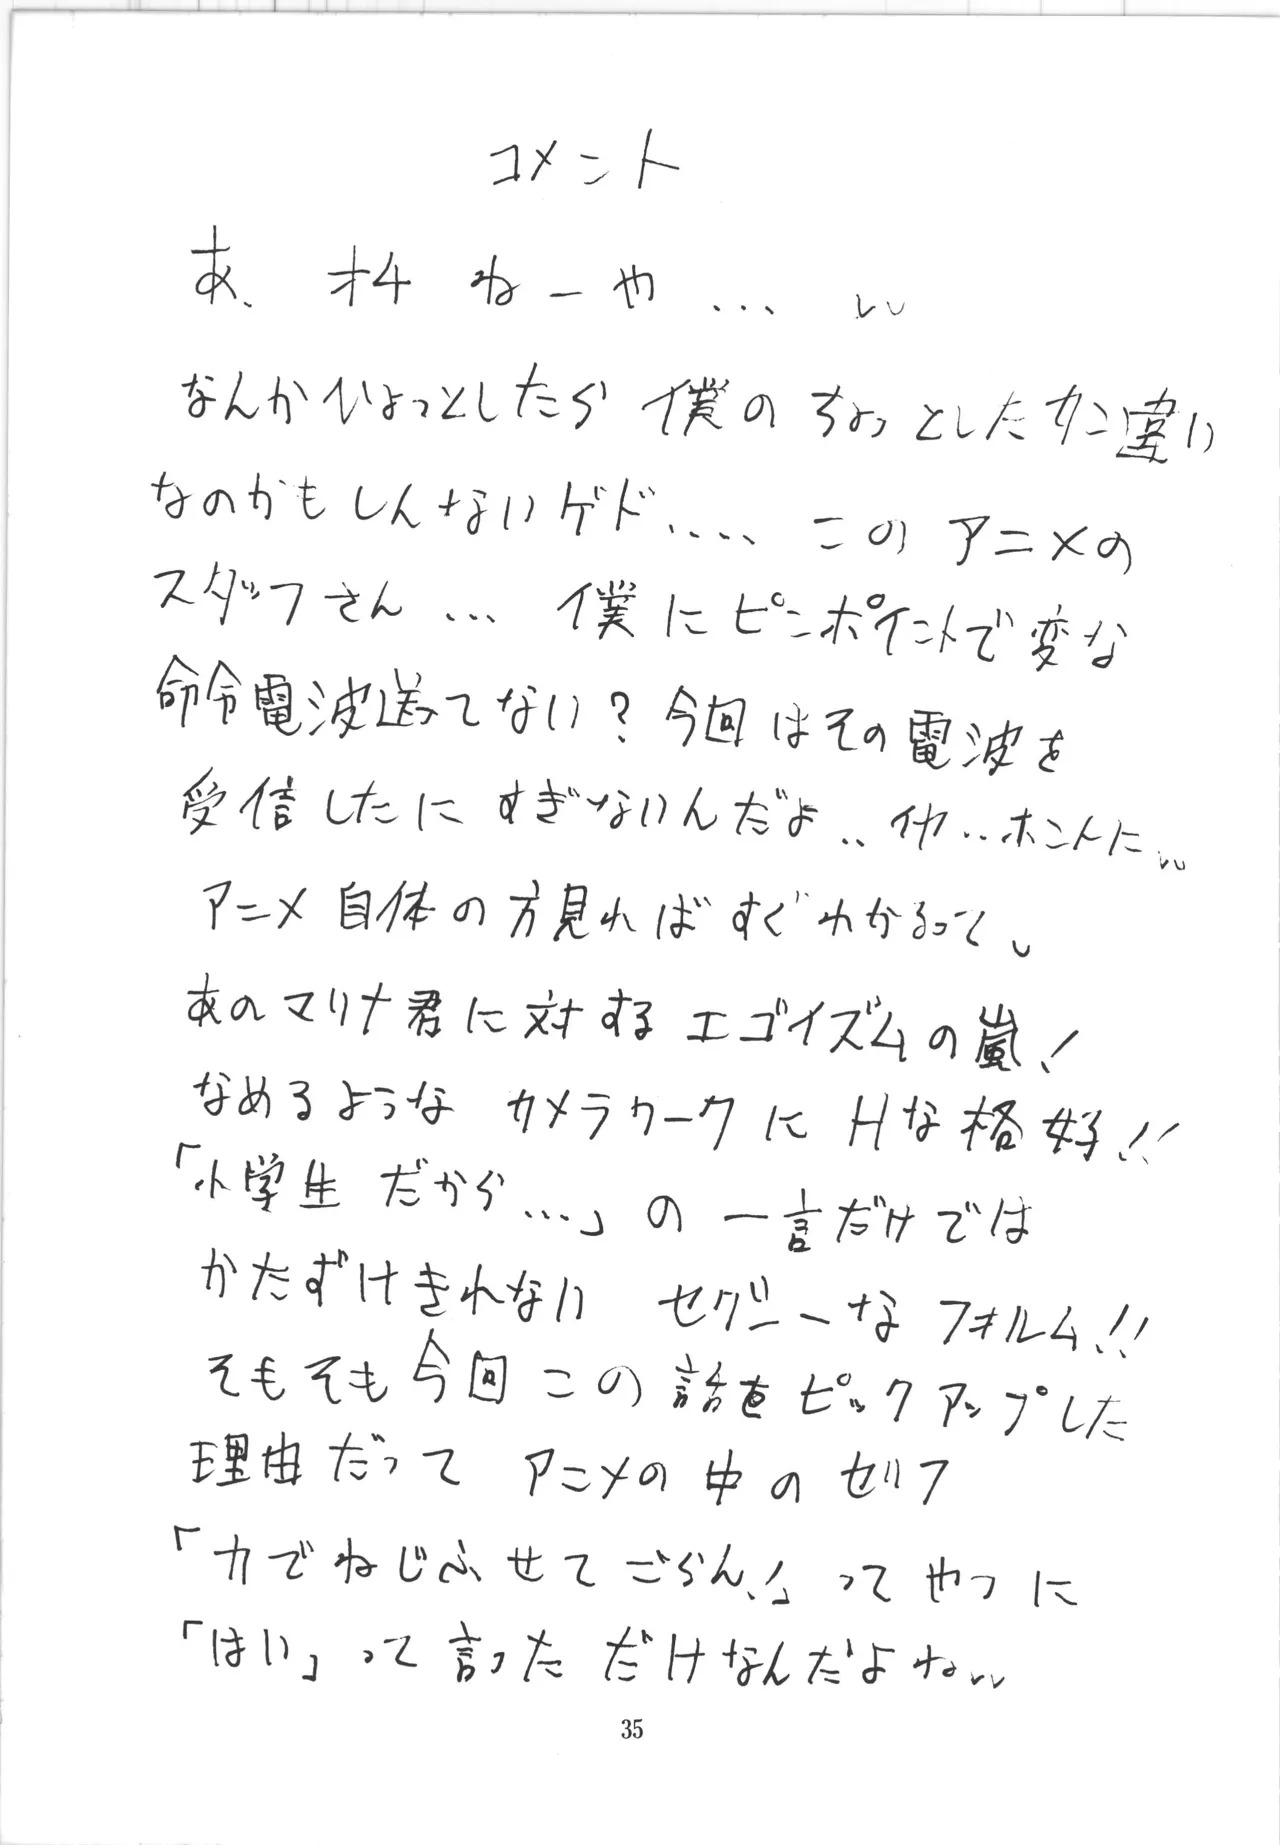 コメント
あ、オチねーや...
なんかひょっとしたら僕のちょっとしたカン違い
なのかもしんないゲド....このアニメの
スタッフさん...僕にピンポイントで変な
命令電波送ってない?今回はその電波を
受信したにすぎないんだよ..イヤ..ホントに
アニメ自体の方見ればすぐわかるって
あのマリナ君に対するエゴイズムの嵐!
なめるようなカメラワークにHな格好!!
「小学生だから...」の一言だけでは
かたずけきれないセクシーなフォルム!!
そもそも今回この話をピックアップした
理由だってアニメの中のセリフ
「力でねじふせてごらん!」ってやつに
「はい」って言っただけなんだよね
35